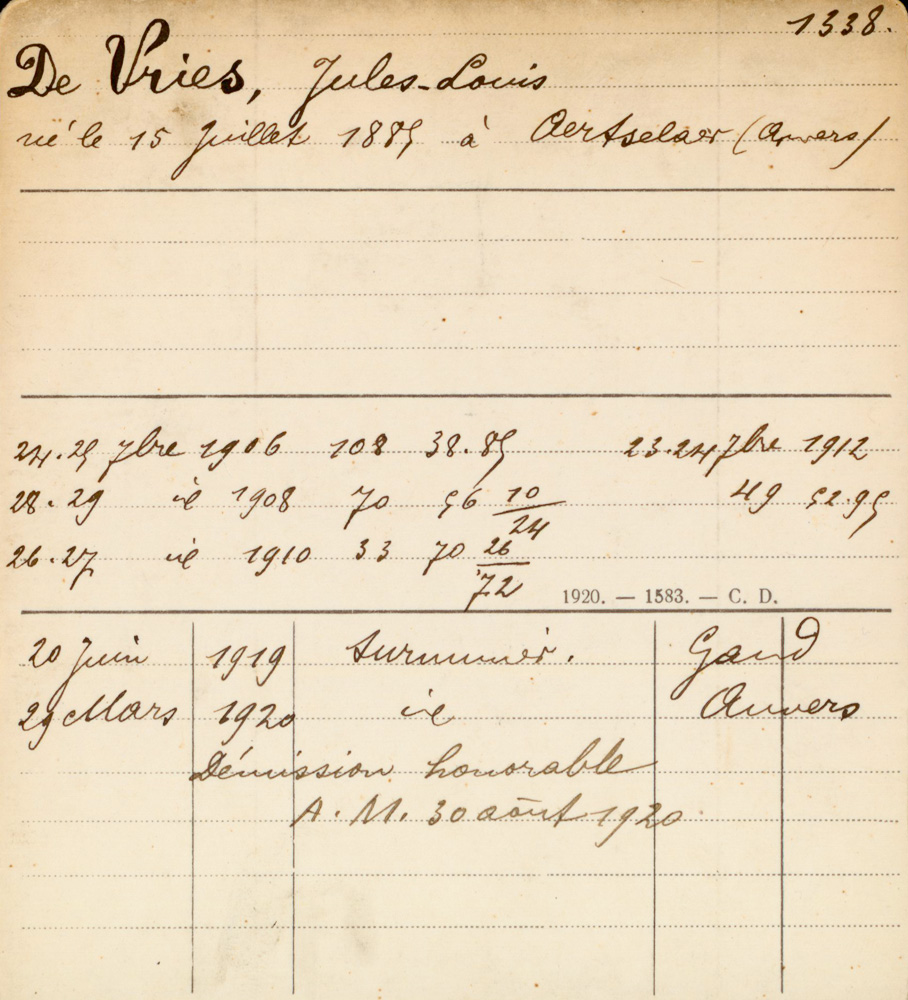 1338.
De Vries, Jules-Louis
né le 15 Juillet 1885 à Aertselaer (Anvers)
24.25 7bre 1906 108 38.85 23.24 7bre 1912
28.29 id 1908 70 56 10/24 49 52.95
26.27 id 1910 33 70 26/72
1920. — 1583. — C. D.
20 Juin 1919 surnumér. Gand
29 Mars 1920 id Anvers
Démission honorable
A. M. 30 août 1920